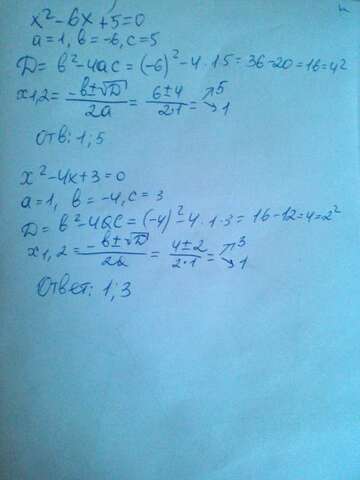 x²-6x+5=0
a=1, b=-6, c=5
D=b²-4ac=(-6)²-4·1·5=36-20=16=4²
x1,2=(-b±√D)/2a=(6±4)/2·1=↗5 ↘1
Отв: 1; 5
x²-4x+3=0
a=1, b=-4, c=3
D=b²-4ac=(-4)²-4·1·3=16-12=4=2²
x1,2=(-b±√D)/2a=(4±2)/2·1=↗3 ↘1
Ответ: 1; 3